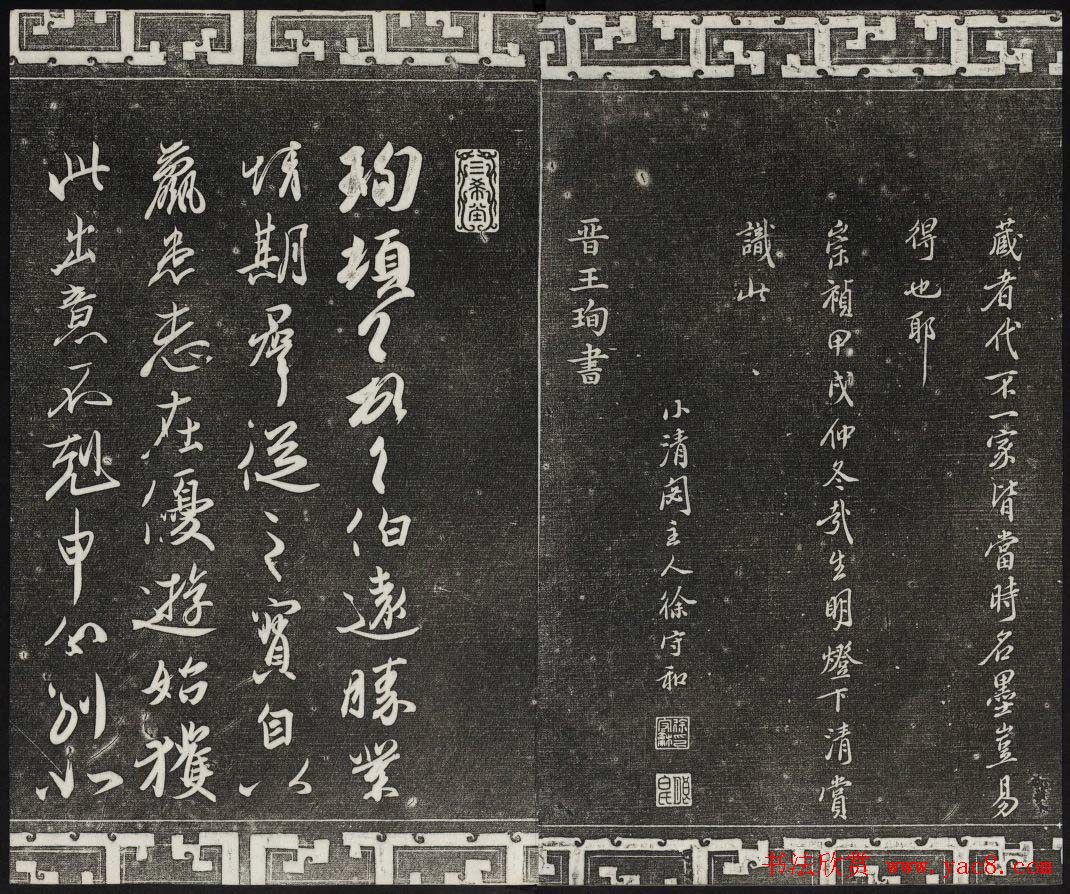 藏者代不一家皆當時名墨豈易
得也耶
崇禎甲戌仲冬哉生明燈下清賞
識此
小清閟主人徐守和
晋王珣書
三希堂
珣頓首頓首伯遠勝業
情期羣從之寶自以
羸患志在優遊始獲
此出意不剋申分別如
书法欣赏 www.yac8.com